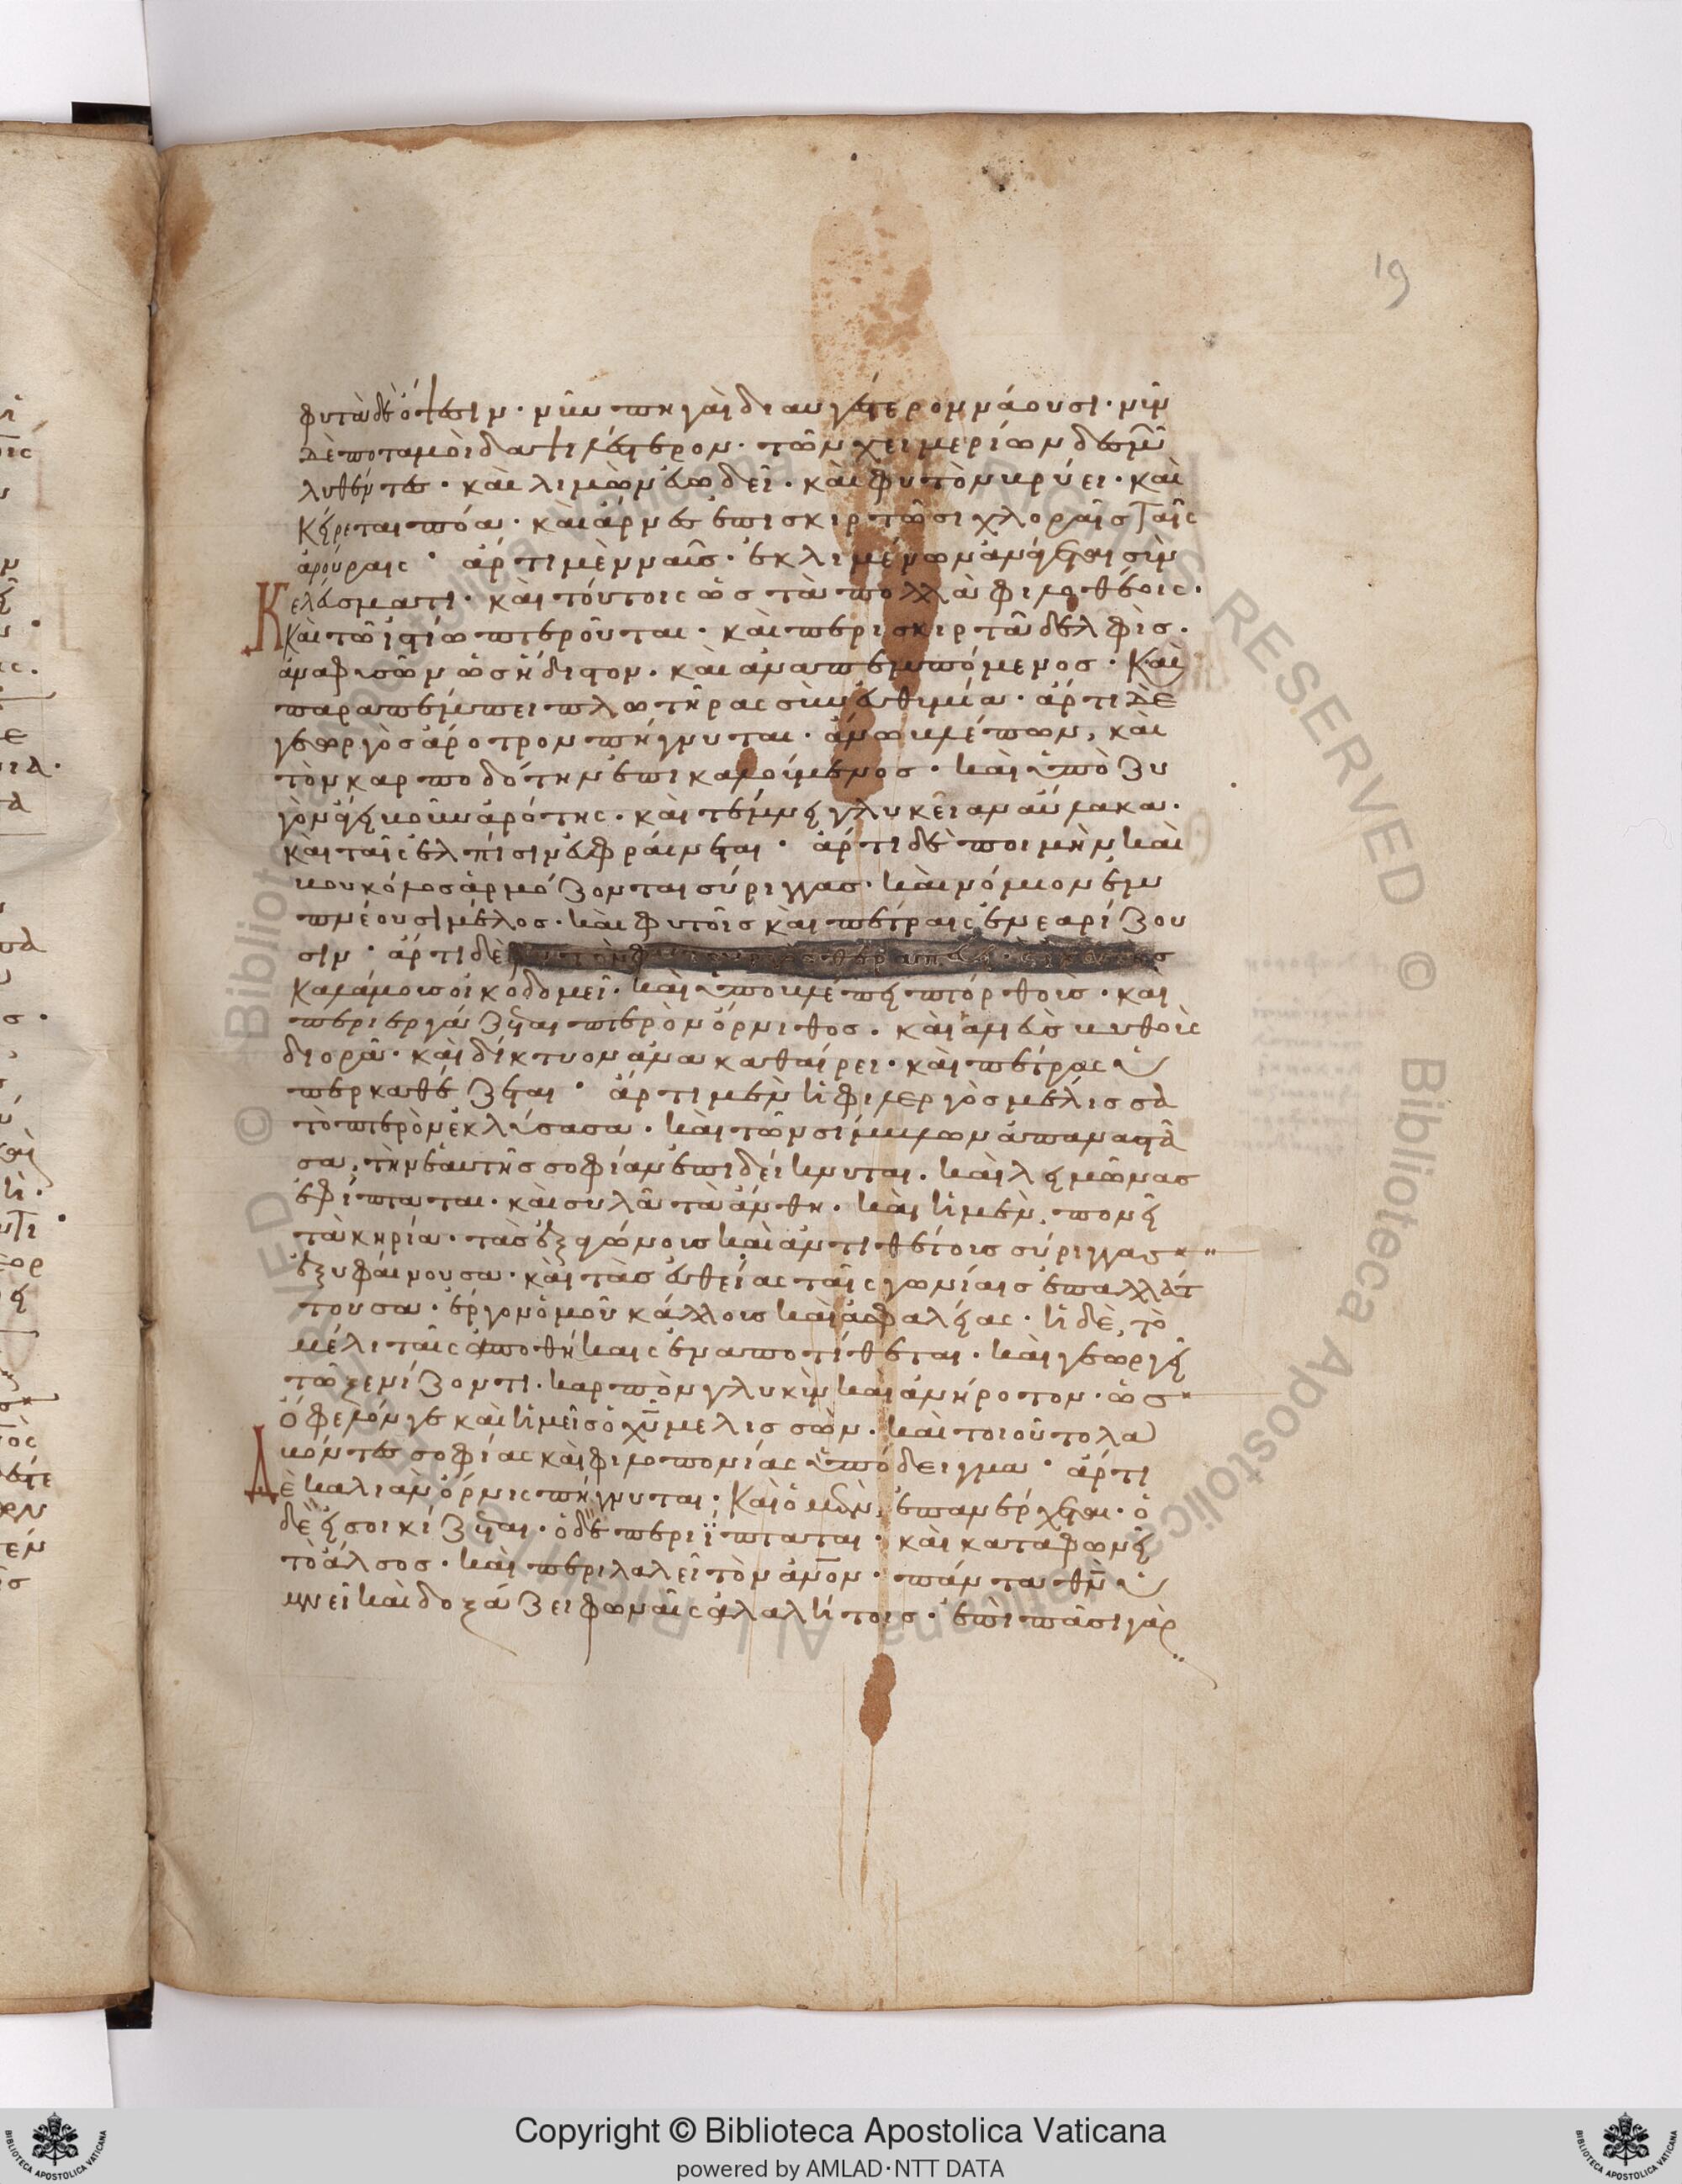 19
φυτὰ δὲ ὄψεσιν· νῦν πηγαὶ διαυγέστερον νάουσι· νῦν
δὲ ποταμοὶ δαψιλέστερον· τῶν χειμερίων δεσμῶν
λυθέντες· καὶ λειμὼν εὐωδεῖ· καὶ φυτὸν βρύει· καὶ
κείρεται πόα· καὶ ἄρνες ἐπισκιρτῶσι χλοεραῖς ταῖς
ἀρούραις· ἄρτι μὲν ναῦς ἐκ λιμένων ἀνάγεται σὺν
κελεύσματι· καὶ τούτοις ὡς τὰ πολλὰ φιλοθέοις·
Καὶ τῷ ἱστίῳ πτεροῦται· καὶ περισκιρτᾷ δελφὶς·
ἀναφυσῶν ὡς ἥδιστον· καὶ ἀναπεμπόμενος· Καὶ
παραπέμπει πλωτῆρας σὺν εὐθυμίᾳ· ἄρτι δὲ
γεωργὸς ἄροτρον πήγνυται· ἄνω βλέπων, καὶ
τὸν καρποδότην ἐπικαλούμενος· καὶ ὑπὸ ζυ
γὸν ἄγει βοῦν ἀρότης· καὶ τέμνει γλυκεῖαν αὔλακα·
καὶ ταῖς ἐλπίσιν εὐφραίνεται· ἄρτι δὲ ποιμὴν καὶ
βουκόλος ἁρμόζονται σύριγγας· καὶ νόμιον ἐμ
πνέουσι μέλος· καὶ φυτοῖς καὶ πέτραις ἐνεαρίζου
σιν· ἄρτι δὲ
καλάμοις οἰκοδομεῖ· καὶ ὑποβλέπει πτόρθοις· καὶ
περιεργάζεται πτερὸν ὄρνιθος· καὶ ἁλιεὺς βυθοὺς
διορᾷ· καὶ δίκτυον ἀνακαθαίρει· καὶ πέτρας ὑ
περκαθέζεται· ἄρτι μὲν ἡ φιλεργὸς μέλισσα
τὸ πτερὸν ἐκλύσασα· καὶ τῶν σίμβλων ἀπαναστᾶ
σα, τὴν ἑαυτῆς σοφίαν ἐπιδείκνυται· καὶ λειμῶνας
ἐφίπταται· καὶ συλᾷ τὰ ἄνθη· καὶ ἡ μὲν, πονεῖ
τὰ κηρία· τὰς ἑξαγώνους καὶ ἀντιθέτους σύριγγας
ἐξυφαίνουσα· καὶ τὰς εὐθείας ταῖς γωνίαις ἐπαλλάτ
τουσα· ἔργον ὁμοῦ κάλλους καὶ ἀσφαλείας· ἡ δὲ, τὸ
μέλι ταῖς ἀποθήκαις ἐναποτίθεται· καὶ γεωργεῖ
τῷ ξενίζοντι· καρπὸν γλυκὺν καὶ ἀνήροτον· ὡς
ὄφελόν γε καὶ ἡμεῖς ὁ χῦ μελισσὼν· καὶ τοιοῦτο λα
βόντες σοφίας καὶ φιλοπονίας ὑπόδειγμα· ἄρτι
δὲ καλιὰν ὄρνις πήγνυται· Καὶ ὁ μὲν, ἐπανέρχεται· ὁ
δὲ εἰσοικίζεται· ὁ δὲ περιΐπταται· καὶ καταφωνεῖ
τὸ ἄλσος· καὶ περιλαλεῖ τὸν ἄνον· πάντα θν ὑ
μνεῖ καὶ δοξάζει φωναῖς ἀλαλήτοις· ἐπὶ πᾶσι γὰρ
Copyright © Biblioteca Apostolica Vaticana
powered by AMLAD·NTT DATA